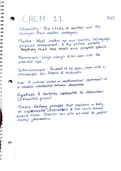 CHEM 11
Chemistry - the study of matter and the
changes that matter undergoes
Matter - What makes up our bodies, belongings,
physical environment, & the entire universe.
Anything that has mass and occupies space
Macroscopic - Large enough to be seen with the
unaided eye
Submicroscopic - Too small to be seen, even with a
microscope. Ex: Atoms & molecules
Law: A concise verbal or mathematical statement of
a reliable relationship between phenomena
Hypothesis: A tentative explanation for observation
(educated guess)
Theory: Unifying principle that explains a body
of experimental observations & the laws based
around them. Theories can also be used to predict